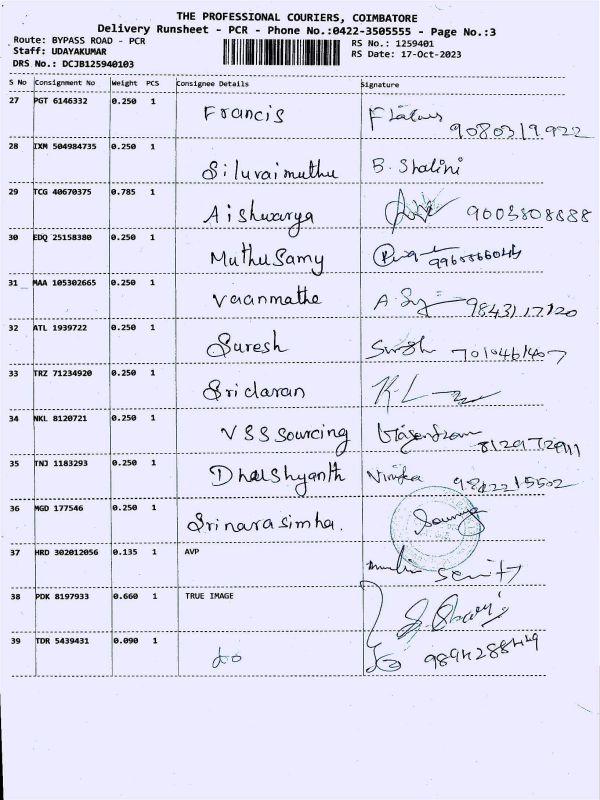 THE PROFESSIONAL COURIERS, COIMBATORE
Delivery Runsheet - PCR - Phone No.:0422-3505555 - Page No.:3
Route: BYPASS ROAD - PCR RS No.: 1259401
Staff: UDAYAKUMAR RS Date: 17-Oct-2023
DRS No.: DCJB125940103
S No Consignment No Weight PCS Consignee Details Signature
27 PGT 6146332 0.250 1 Francis 9080319922
28 IXM 504984735 0.250 1 Siluvaimuthu B. Shalini
29 TCG 40670375 0.785 1 Aishwarya 9003808888
30 EDQ 25158380 0.250 1 Muthu Samy
31 MAA 105302665 0.250 1 Vaanmathe 9843117120
32 ATL 1939722 0.250 1 Suresh Suresh 7010461407
33 TRZ 71234920 0.250 1 Sridaran
34 NKL 8120721 0.250 1 VSS Sourcing
35 TNJ 1183293 0.250 1 Dharshyanth
36 MGD 177546 0.250 1 Srinarasimha. Sowmya
37 HRD 302012056 0.135 1 AVP
38 PDK 8197933 0.660 1 TRUE IMAGE
39 TDR 5439431 0.090 1 do 9894288449